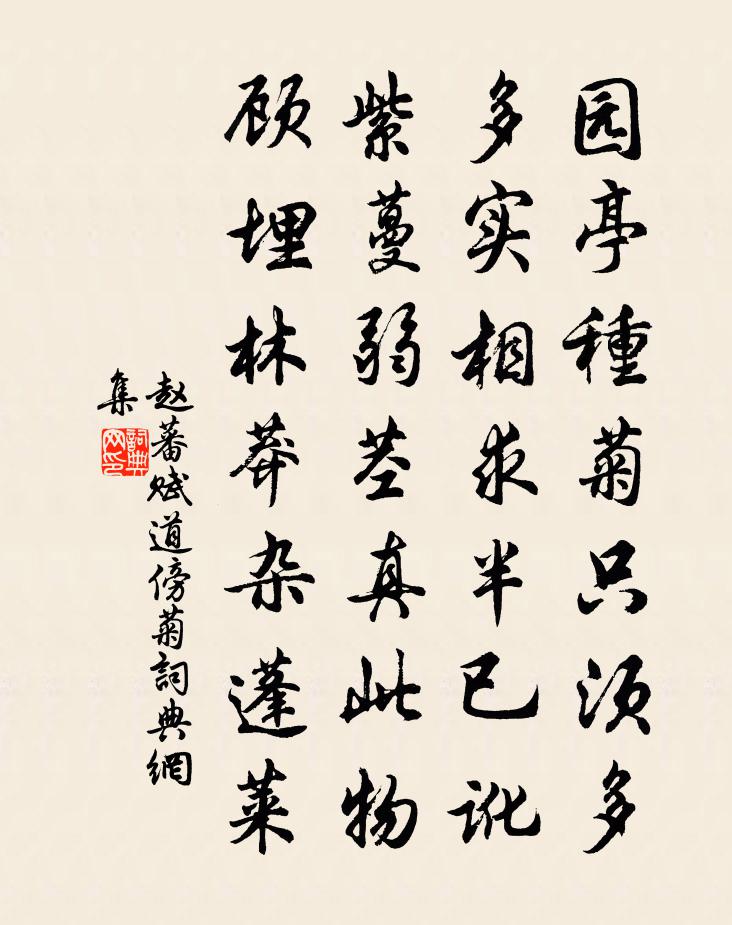 园亭種菊只须多
多实相求半已讹
紫蔓弱茎真此物
顾埋林莽杂蓬莱
赵蕃赋道傍菊詞典網
集
詞典
网印